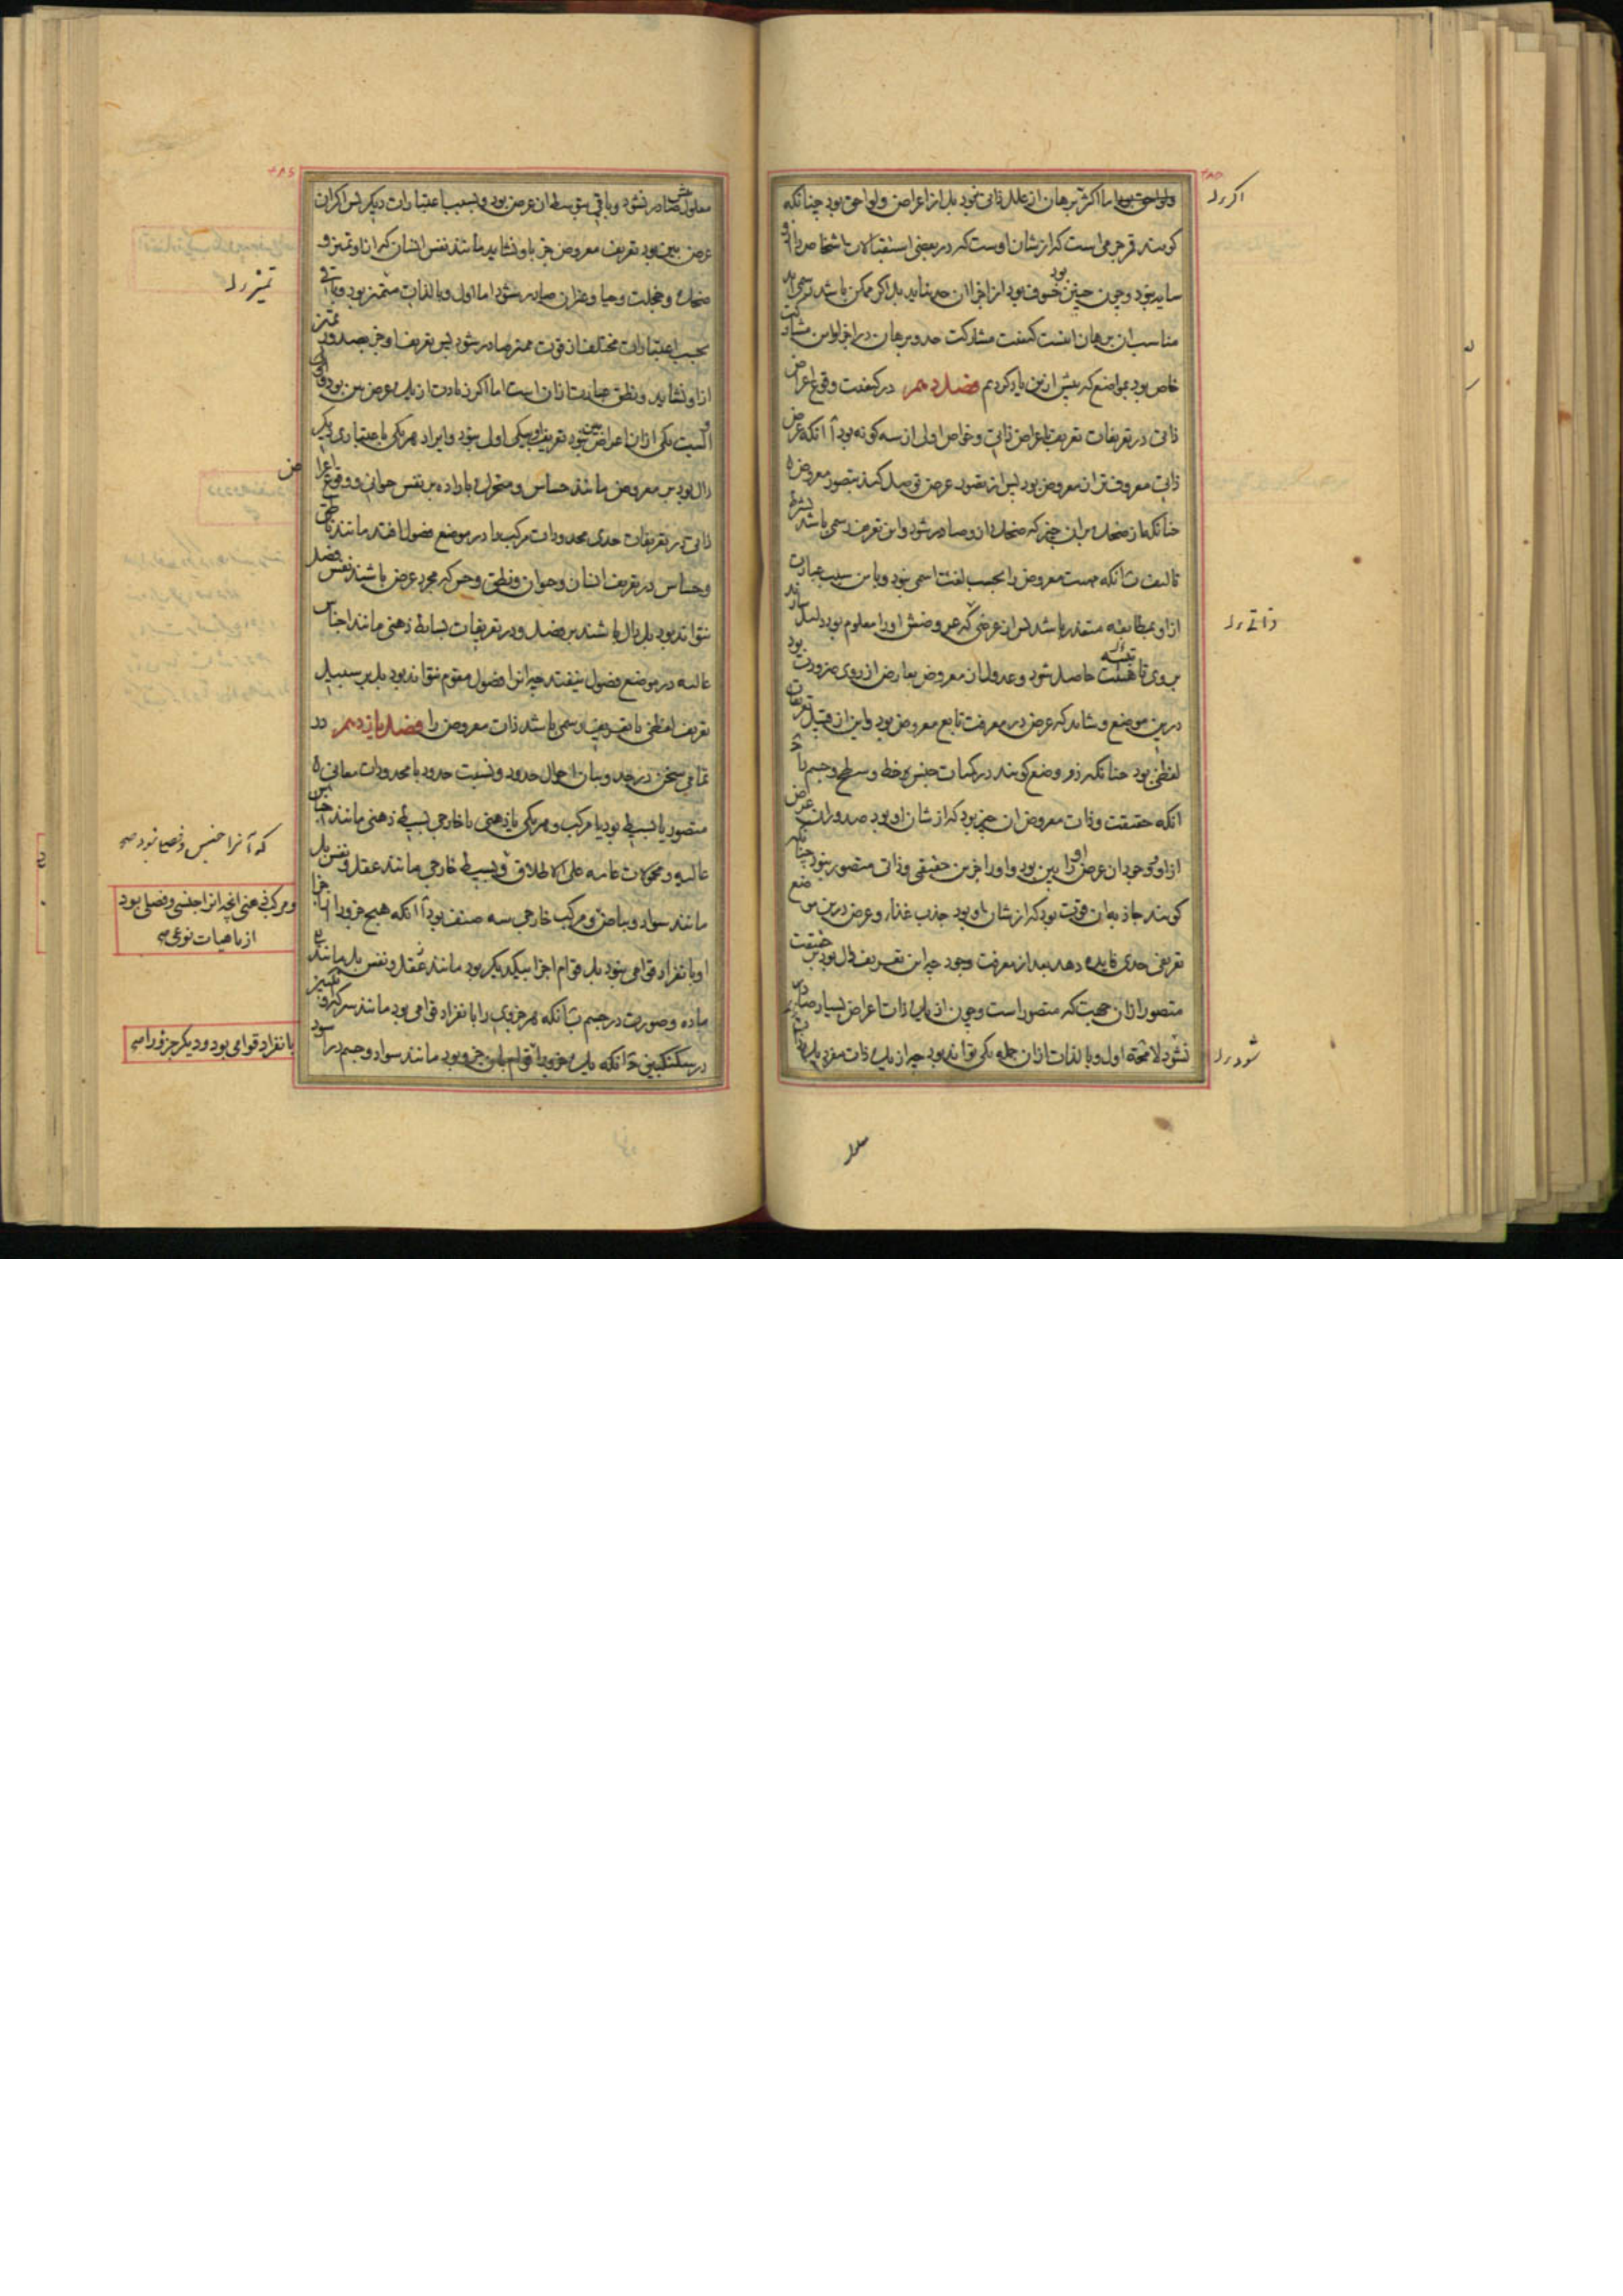 اما اکثر برهان از علل ذاتی نبود بل از اعراض و لواحق بود چنانکه
کویند قمر جرمی است که از شان اوست که در بعضی استقبالات باشخاص
و چون چنین بود خسوف بود از اجزا ان حد نیاید بل اکر ممکن باشد رسمی
مناسب ان برهان اینست کیفیت مشارکت حد و برهان و مشارکت
خاص بود بمواضع که پیش ازین یاد کردیم فصل دهم در کیفیت وقوع اعراض
ذاتی در تعریفات تعریف باعراض ذاتی و خواص اولی از سه کونه بود آ انکه عرض
ذاتی معروفتر از معروض بود پس از تصور عرض توصل کنند بتصور معروض
چنانکه از ضحک بر ان چیز که ضحک ازو صادر شود و این تعریف رسمی باشد بشرط
تالیف ب انکه ماهیت معروض را بحسب لغت اسمی نبود و باین سبب عبارت
ازاو بمطابقه متعذر باشد پس ان عرضی که عروضش اورا معلوم بود دلیل سازند
بر وی تا حاصل شود و عدول از معروض بعارض از روی ضرورت بود
درین موضع و شاید که عرض در معرفت تابع معروض بود و این از قبیل تعریفات
لفظی بود چنانکه ذو وضع کویند در کمیات جنس خط و سطح و جسم را
انکه حقیقت و ذات معروض ان چیز بود که از شان او بود صدور ان عرض
ازاو و وجود ان عرض او را بین بود و اورا جز این حقیقی و ذاتی متصور نبود چنانکه
کویند جاذبه ان قوت بود که از شان او بود جذب غذا و عرض درین موضع
تعریفی حدی فایده دهد بعد از معرفت وجود چه این تعریف دال بود بر حقیقت
متصور ازان جهت که متصور است و چون از یک ذات اعراض بسیار صادر
نشود لامحاله اول و بالذات ازان جمله یکی تواند بود چه از یک ذات مفرد یک
اکر
ذاتی
شود
معلولش صادر نشود و باقی بتوسط ان عرض بود و بسبب اعتبارات دیکر پس اکر ان
عرض بین بود تعریف معروض جز باو نشاید مانند نفس انسان که ازاو تمیز و
ضحک و خجلت و حیا و غیر ان صادر شود اما اول و بالذات متمیز بود و باقی
بحسب اعتبارات مختلف ازان قوت ممیز صادر شود پس تعریف او جز بصدور تمیز
ازاو نشاید و نطق عبارت ازان است اما اکر زیادت از یک عرض بین بود و
یکی ازان اعراض بین نبود تعریف او بیکی اولی نبود و ایراد هر یکی باعتباری دیکر
دال بود بر معروض مانند حساس و متحرک باراده بر نفس حیوانی و وقوع اعراض
ذاتی در تعریفات حدی محدودات مرکب را در موضع فصول افتد مانند ناطق
و حساس در تعریف انسان و حیوان و نطق و حس که مجرد عرض باشند نفس فصل
نتوانند بود بل دال باشند بر فصل و در تعریفات بسایط ذهنی مانند اجناس
عالیه در موضع فصول نیفتد چه انرا فصول مقوم نتواند بود بل بر سبیل
تعریف لفظی یا تعریف رسمی باشد ذات معروض را فصل یازدهم در
تمامی سخن در حد و بیان احوال حدود و نسبت حدود با محدودات معانی
متصور یا بسیط بود یا مرکب و هر یکی یا ذهنی یا خارجی بسیط ذهنی مانند اجناس
عالیه و محمولات عامه علی الاطلاق و بسیط خارجی مانند عقل و نفس بل
مانند سواد و بیاض و مرکب خارجی سه صنف بود آ انکه هیچ جزو را از اجزاء
او بانفراد قوامی نبود بل قوام اجزا بیکدیکر بود مانند عقل و نفس بل مانند
ماده و صورت در جسم ب انکه هر جزوی را بانفراد قوامی بود مانند سرکه و انکبین
در سکنکبین ج انکه یک جزو را قوام بان جزو بود مانند سواد و جسم در اسود
تمیز
که آنرا جنس و فصل نبود صح
و مرکب ذهنی انچه انرا جنسی و فصلی بود
از ماهیات نوعی صح
بانفراد قوامی بود و دیکر جزو را صح